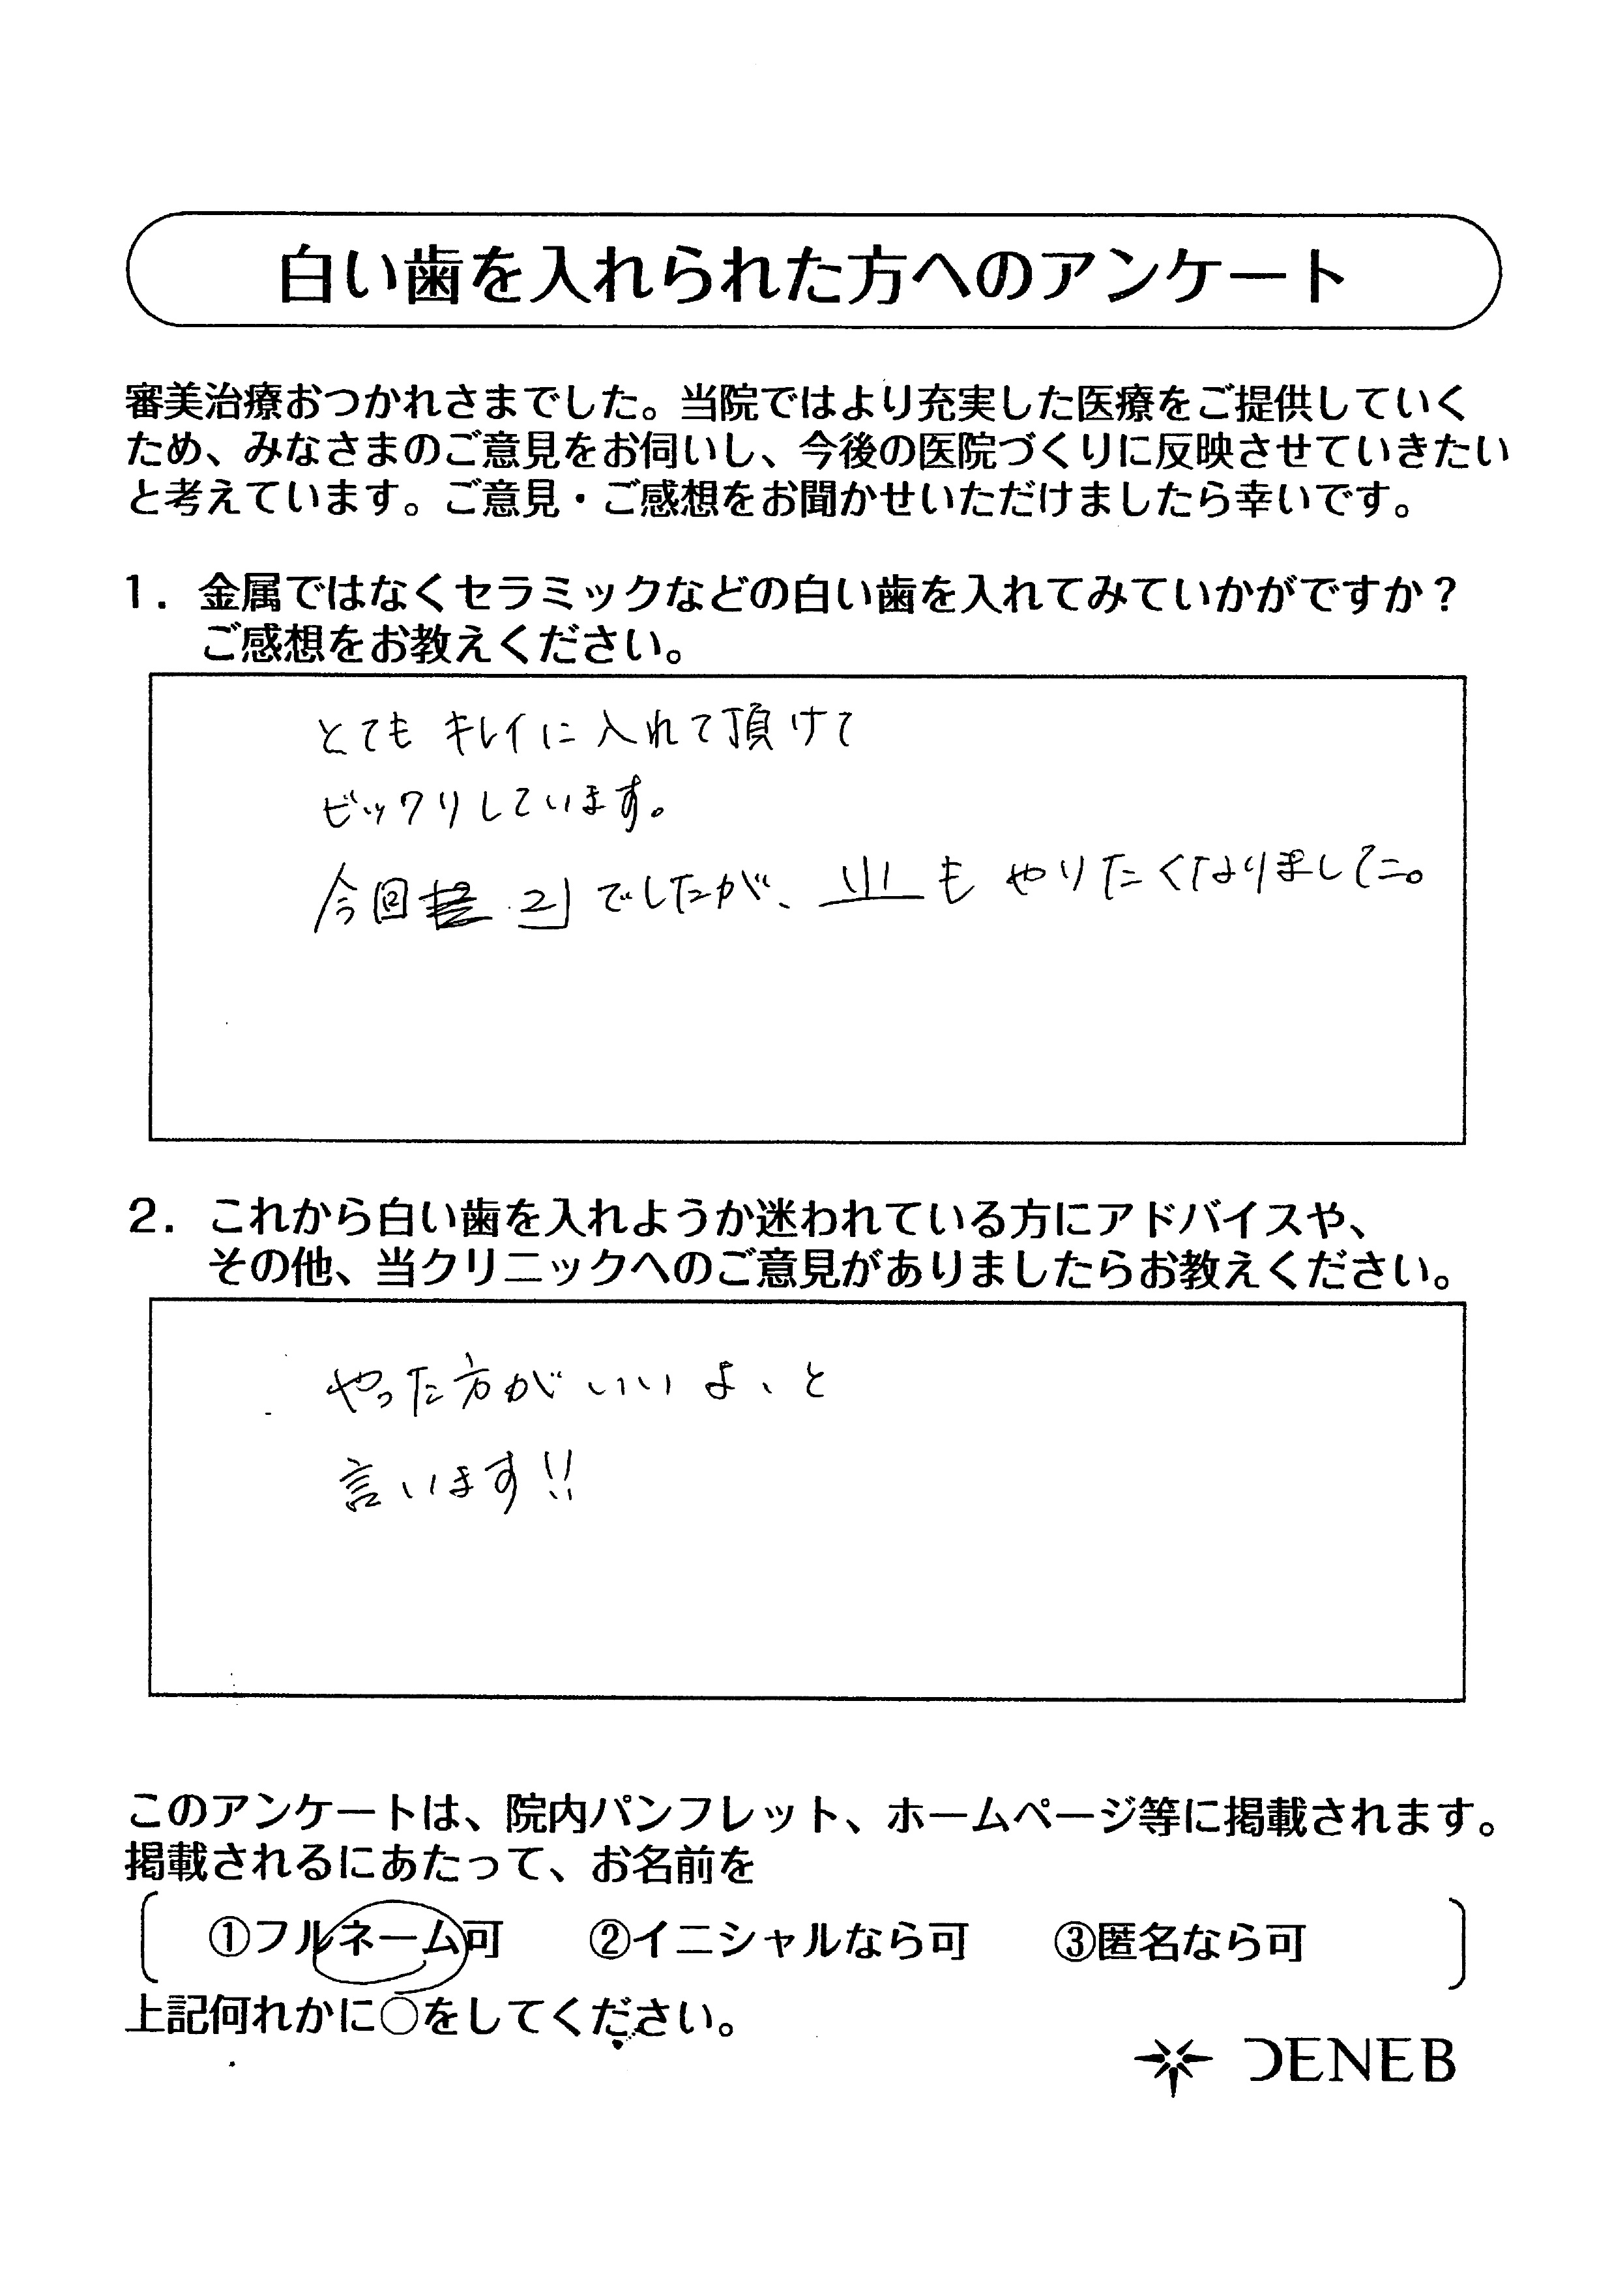 白い歯を入れられた方へのアンケート
審美治療おつかれさまでした。当院ではより充実した医療をご提供していく
ため、みなさまのご意見をお伺いし、今後の医院づくりに反映させていきたい
と考えています。ご意見・ご感想をお聞かせいただけましたら幸いです。
1. 金属ではなくセラミックなどの白い歯を入れてみていかがですか?
ご感想をお教えください。
とてもキレイに入れて頂けて
ビックリしています。
今回 2」でしたが、 1|1 もやりたくなりました。
2. これから白い歯を入れようか迷われている方にアドバイスや、
その他、当クリニックへのご意見がありましたらお教えください。
やった方がいいよ、と
言います!!
このアンケートは、院内パンフレット、ホームページ等に掲載されます。
掲載されるにあたって、お名前を
①フルネーム可 ②イニシャルなら可 ③匿名なら可
上記何れかに○をしてください。
DENEB